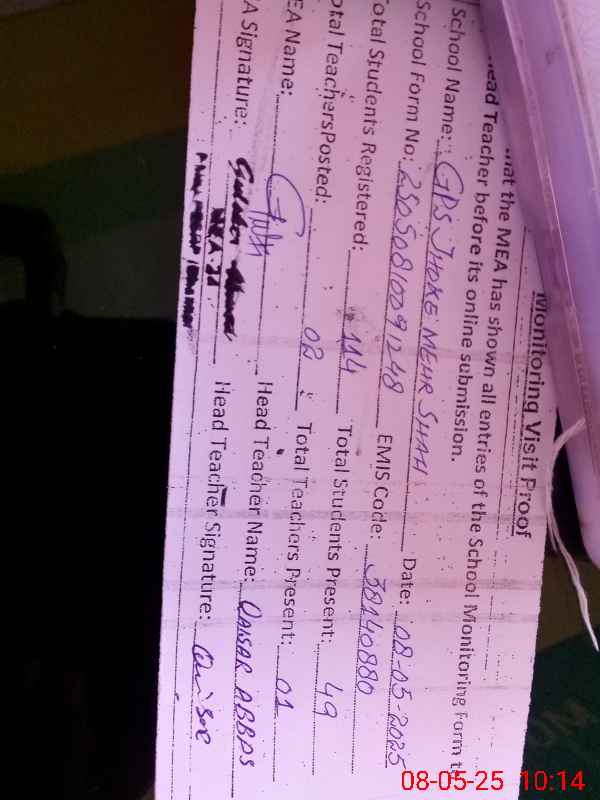 Monitoring Visit Proof
that the MEA has shown all entries of the School Monitoring Form t
ead Teacher before its online submission.
School Name: GPS JHOKE MEHR SHAH
School Form No: Date: 08-05-2025
otal Students Registered: 114 EMIS Code: 38140880
otal TeachersPosted: 02 Total Students Present: 49
EA Name: Total Teachers Present: 01
A Signature: Head Teacher Name: QAISAR ABBAS
Head Teacher Signature:
08-05-25 10:14